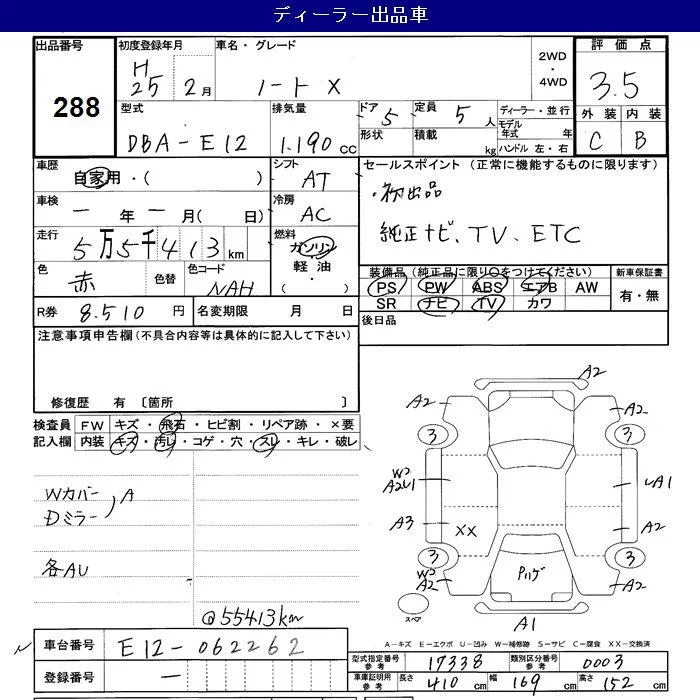 ディーラー出品車
出品番号
288
初度登録年月
H
25 2月
車名・グレード
ノート X
2WD
・
4WD
評価点
3.5
外装 内装
C B
型式
DBA-E12
排気量
1.190 cc
ドア 5
定員 5人
形状
積載 kg
ディーラー・並行
モデル
年式 年
ハンドル 左・右
車歴
自家用・( )
シフト
AT
セールスポイント (正常に機能するものに限ります)
・初出品
純正ナビ、TV、ETC
車検
一 年 一 月( 日)
冷房
AC
走行
5万5千413km
燃料
ガソリン
・
軽油
( )
色
赤
色替
色コード
NAH
装備品 (純正品に限り○をつけてください)
PS PW ABS エアB AW
SR ナビ TV カワ
新車保証書
有・無
R券 8.510 円
名変期限 月 日
後日品
注意事項申告欄 (不具合内容等は具体的に記入して下さい)
修復歴 有 〔箇所 〕
検査員
記入欄
FW キズ・飛石・ヒビ割・リペア跡・×要
内装 キズ・汚レ・コゲ・穴・スレ・キレ・破レ
Wカバー
Dミラー
A
各AU
@55413km
A2
A2
A2
3
3
W2
A2U1
A1
A3
XX
A2
3
3
W2
A2
Pハゲ
A2
スペア
A1
A-キズ E-エクボ U-凹み W-補修跡 S-サビ C-腐食 XX-交換済
車台番号
E12-062262
登録番号
一
型式指定番号
参考
17338
類別区分番号
参考
0003
車庫証明用
参考
長さ 410 cm
幅 169 cm
高さ 152 cm